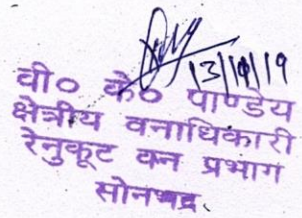 13/11/19
वी० के० पाण्डेय
क्षेत्रीय वनाधिकारी
रेनुकूट वन प्रभाग
सोनभद्र